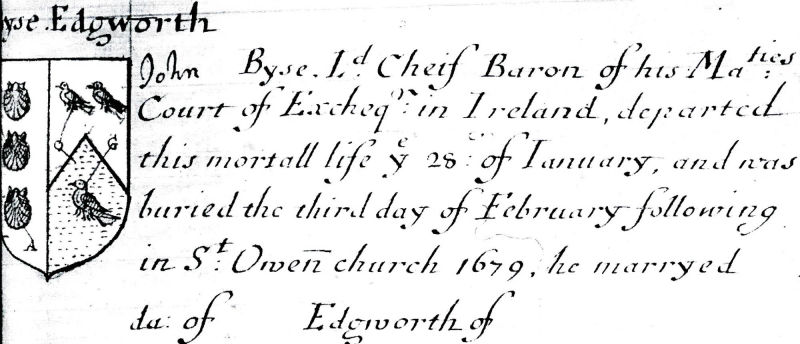 yse. Edgworth
John Byse. Ld. Cheif Baron of his Maties:
Court of Excheqr: in Ireland, departed
this mortall life ye 28: of Ianuary, and was
buried the third day of February following
in St: Owen̅ church 1679, he marryed
da: of Edgworth of
O G
A